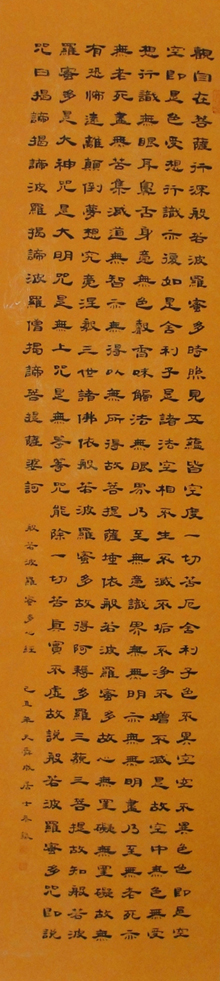 觀自在菩薩行深般若波羅蜜多時照見五蘊皆空度一切苦厄舍利子色不異空空不異色色即是空
空即是色受想行識亦復如是舍利子是諸法空相不生不滅不垢不淨不增不減是故空中無色無受
想行識無眼耳鼻舌身意無色聲香味觸法無眼界乃至無意識界無無明亦無無明盡乃至無老死亦
無老死盡無苦集滅道無智亦無得以無所得故菩提薩埵依般若波羅蜜多故心無罣礙無罣礙故無
有恐怖遠離顛倒夢想究竟涅槃三世諸佛依般若波羅蜜多故得阿耨多羅三藐三菩提故知般若波
羅蜜多是大神咒是大明咒是無上咒是無等等咒能除一切苦真實不虛故說般若波羅蜜多咒即說
咒曰揭諦揭諦波羅揭諦波羅僧揭諦菩提薩婆訶
般若波羅蜜多心經